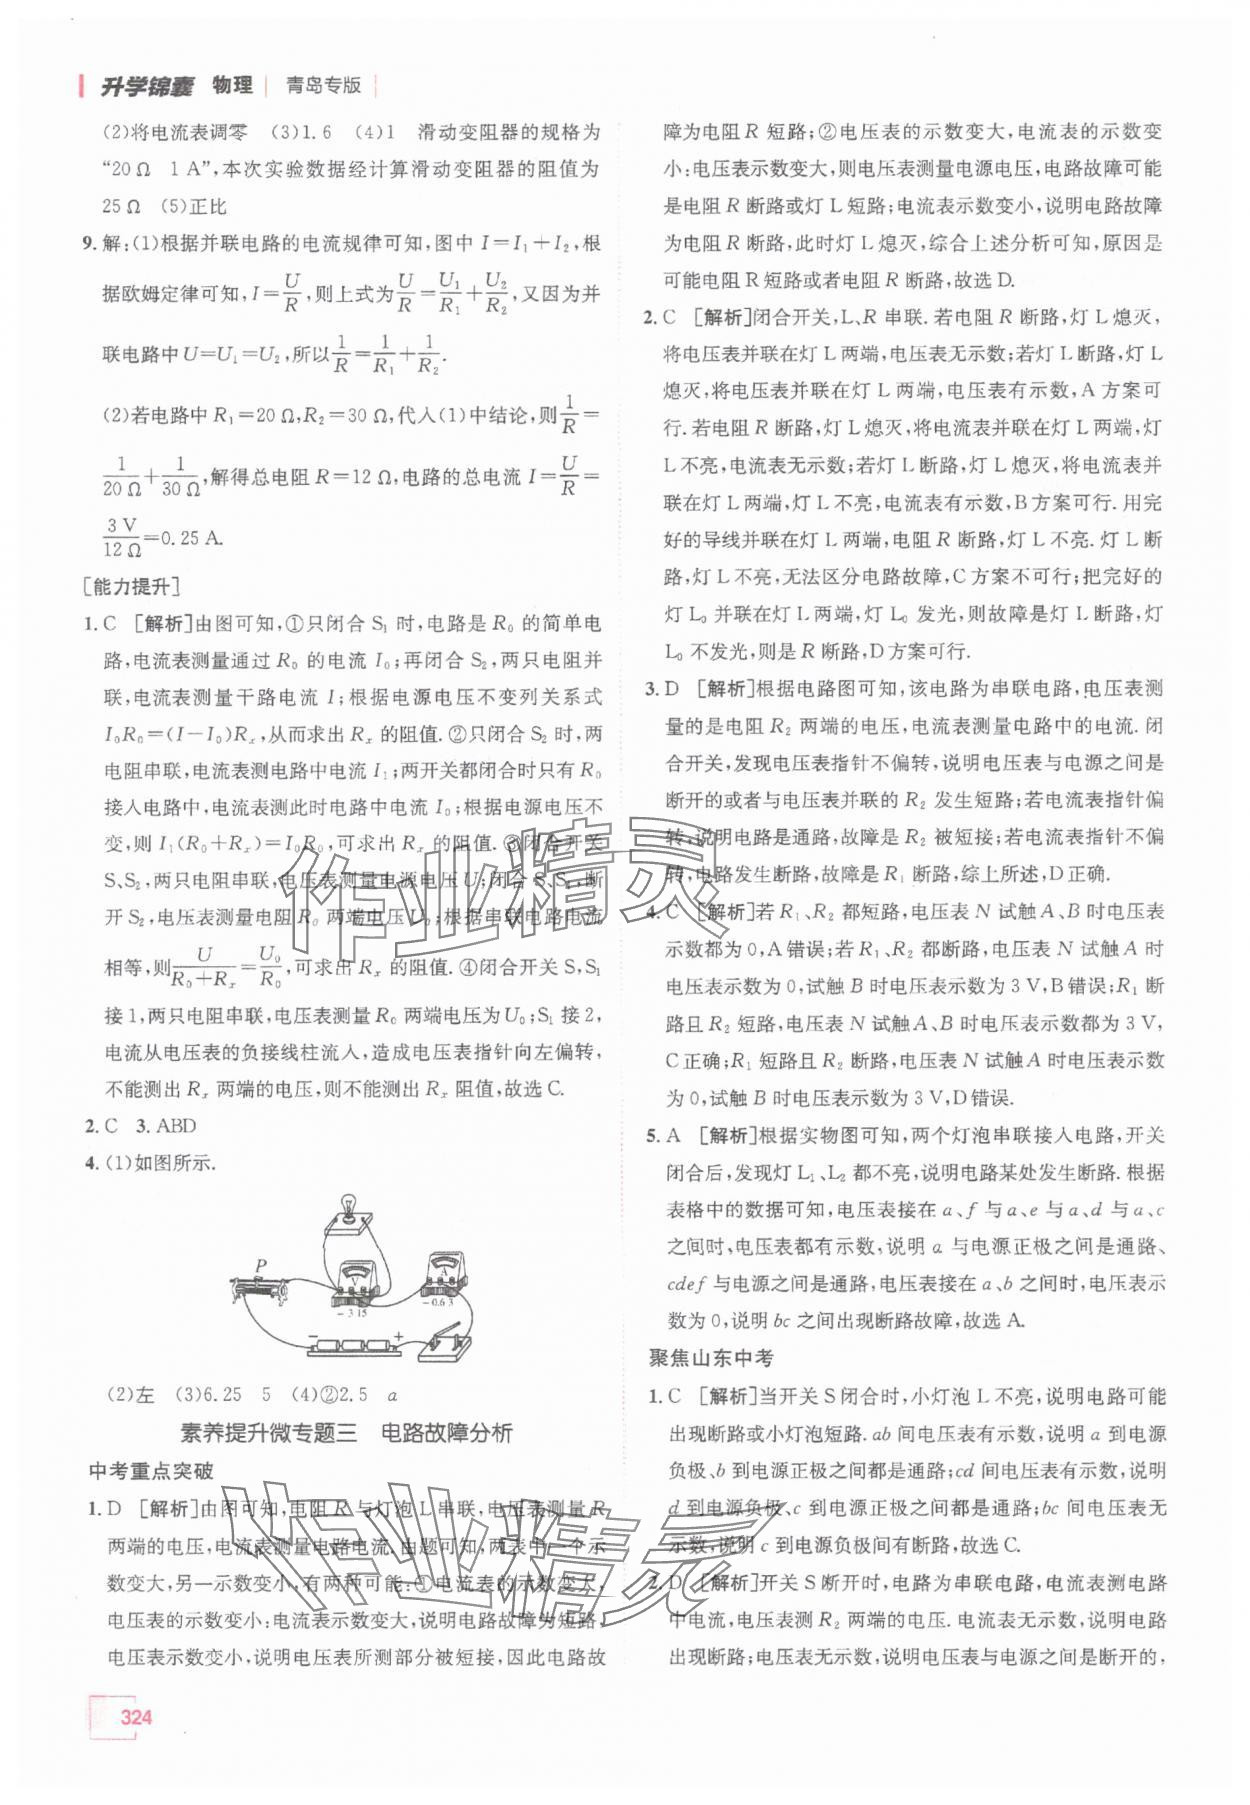 升学锦囊 物理 青岛专版
(2)将电流表调零 (3)1.6 (4)1 滑动变阻器的规格为
“20 Ω 1 A”,本次实验数据经计算滑动变阻器的阻值为
25 Ω (5)正比
9. 解:(1)根据并联电路的电流规律可知,图中 I=I₁+I₂,根
据欧姆定律可知,I=U/R,则上式为U/R=U₁/R₁+U₂/R₂,又因为并
联电路中 U=U₁=U₂,所以1/R=1/R₁+1/R₂.
(2)若电路中 R₁=20 Ω,R₂=30 Ω,代人(1)中结论,则1/R=
1/20 Ω+1/30 Ω,解得总电阻 R=12 Ω,电路的总电流 I=U/R=
3 V/12 Ω=0.25 A.
[能力提升]
1. C [解析]由图可知,①只闭合 S₁ 时,电路是 R₀ 的简单电
路,电流表测量通过 R₀ 的电流 I₀;再闭合 S₂,两只电阻并
联,电流表测量干路电流 I;根据电源电压不变列关系式
I₀R₀=(I-I₀)Rₓ,从而求出 Rₓ 的阻值.②只闭合 S₂ 时,两
电阻串联,电流表测电路中电流 I₁;两开关都闭合时只有 R₀
接人电路中,电流表测此时电路中电流 I₀;根据电源电压不
变,则 I₁(R₀+Rₓ)=I₀R₀,可求出 Rₓ 的阻值.③闭合开关
S、S₂,两只电阻串联,电压表测量电源电压 U;闭合 S、S₂,断
开 S₂,电压表测量电阻 R₀ 两端电压U₀;根据串联电路电流
相等,则U/R₀+Rₓ=U₀/R₀,可求出 Rₓ 的阻值.④闭合开关 S,S₁
接 1,两只电阻串联,电压表测量 R₀ 两端电压为 U₀;S₁ 接 2,
电流从电压表的负接线柱流人,造成电压表指针向左偏转,
不能测出 Rₓ 两端的电压,则不能测出 Rₓ 阻值,故选 C.
2. C 3. ABD
4. (1)如图所示.
P
V
A
- 3 15
- 0.6 3
− +
(2)左 (3)6.25 5 (4)②2.5 a
素养提升微专题三 电路故障分析
中考重点突破
1. D [解析]由图可知,电阻 R 与灯泡 L 串联,电压表测量 R
两端的电压,电流表测量电路电流. 由题可知,电表一个示
数变大,另一示数变小,有两种可能:①电流表的示数变大,
电压表的示数变小:电流表示数变大,说明电路故障为短路,
电压表示数变小,说明电压表所测部分被短接,因此电路故
障为电阻 R 短路;②电压表的示数变大,电流表的示数变
小:电压表示数变大,则电压表测量电源电压,电路故障可能
是电阻 R 断路或灯 L 短路;电流表示数变小,说明电路故障
为电阻 R 断路,此时灯 L 熄灭,综合上述分析可知,原因是
可能电阻 R 短路或者电阻 R 断路,故选 D.
2. C [解析]闭合开关,L、R 串联. 若电阻 R 断路,灯 L 熄灭,
将电压表并联在灯 L 两端,电压表无示数;若灯 L 断路,灯 L
熄灭,将电压表并联在灯 L 两端,电压表有示数,A 方案可
行. 若电阻 R 断路,灯 L 熄灭,将电流表并联在灯 L 两端,灯
L 不亮,电流表无示数;若灯 L 断路,灯 L 熄灭,将电流表并
联在灯 L 两端,灯 L 不亮,电流表有示数,B 方案可行. 用完
好的导线并联在灯 L 两端,电阻 R 断路,灯 L 不亮. 灯 L 断
路,灯 L 不亮,无法区分电路故障,C 方案不可行;把完好的
灯 L₀ 并联在灯 L 两端,灯 L₀ 发光,则故障是灯 L 断路,灯
L₀ 不发光,则是 R 断路,D 方案可行.
3. D [解析]根据电路图可知,该电路为串联电路,电压表测
量的是电阻 R₂ 两端的电压,电流表测量电路中的电流. 闭
合开关,发现电压表指针不偏转,说明电压表与电源之间是
断开的或者与电压表并联的 R₂ 发生短路;若电流表指针偏
转,说明电路是通路,故障是 R₂ 被短接;若电流表指针不偏
转,电路发生断路,故障是 R₁ 断路,综上所述,D 正确.
4. C [解析]若 R₁、R₂ 都短路,电压表 N 试触 A、B 时电压表
示数都为 0,A 错误;若 R₁、R₂ 都断路,电压表 N 试触 A 时
电压表示数为 0,试触 B 时电压表示数为 3 V,B 错误;R₁ 断
路且 R₂ 短路,电压表 N 试触 A、B 时电压表示数都为 3 V,
C 正确;R₁ 短路且 R₂ 断路,电压表 N 试触 A 时电压表示数
为 0,试触 B 时电压表示数为 3 V,D 错误.
5. A [解析]根据实物图可知,两个灯泡串联接人电路,开关
闭合后,发现灯 L₁、L₂ 都不亮,说明电路某处发生断路. 根据
表格中的数据可知,电压表接在 a、f 与 a、e 与 a、d 与 a、c
之间时,电压表都有示数,说明 a 与电源正极之间是通路、
cdef 与电源之间是通路,电压表接在 a、b 之间时,电压表示
数为 0,说明 bc 之间出现断路故障,故选 A.
聚焦山东中考
1. C [解析]当开关 S 闭合时,小灯泡 L 不亮,说明电路可能
出现断路或小灯泡短路. ab 间电压表有示数,说明 a 到电源
负极、b 到电源正极之间都是通路;cd 间电压表有示数,说明
d 到电源负极、c 到电源正极之间都是通路;bc 间电压表无
示数,说明 c 到电源负极间有断路,故选 C.
2. D [解析]开关 S 断开时,电路为串联电路,电流表测电路
中电流,电压表测 R₂ 两端的电压. 电流表无示数,说明电路
出现断路;电压表无示数,说明电压表与电源之间是断开的,
324
作业精灵
作业精灵